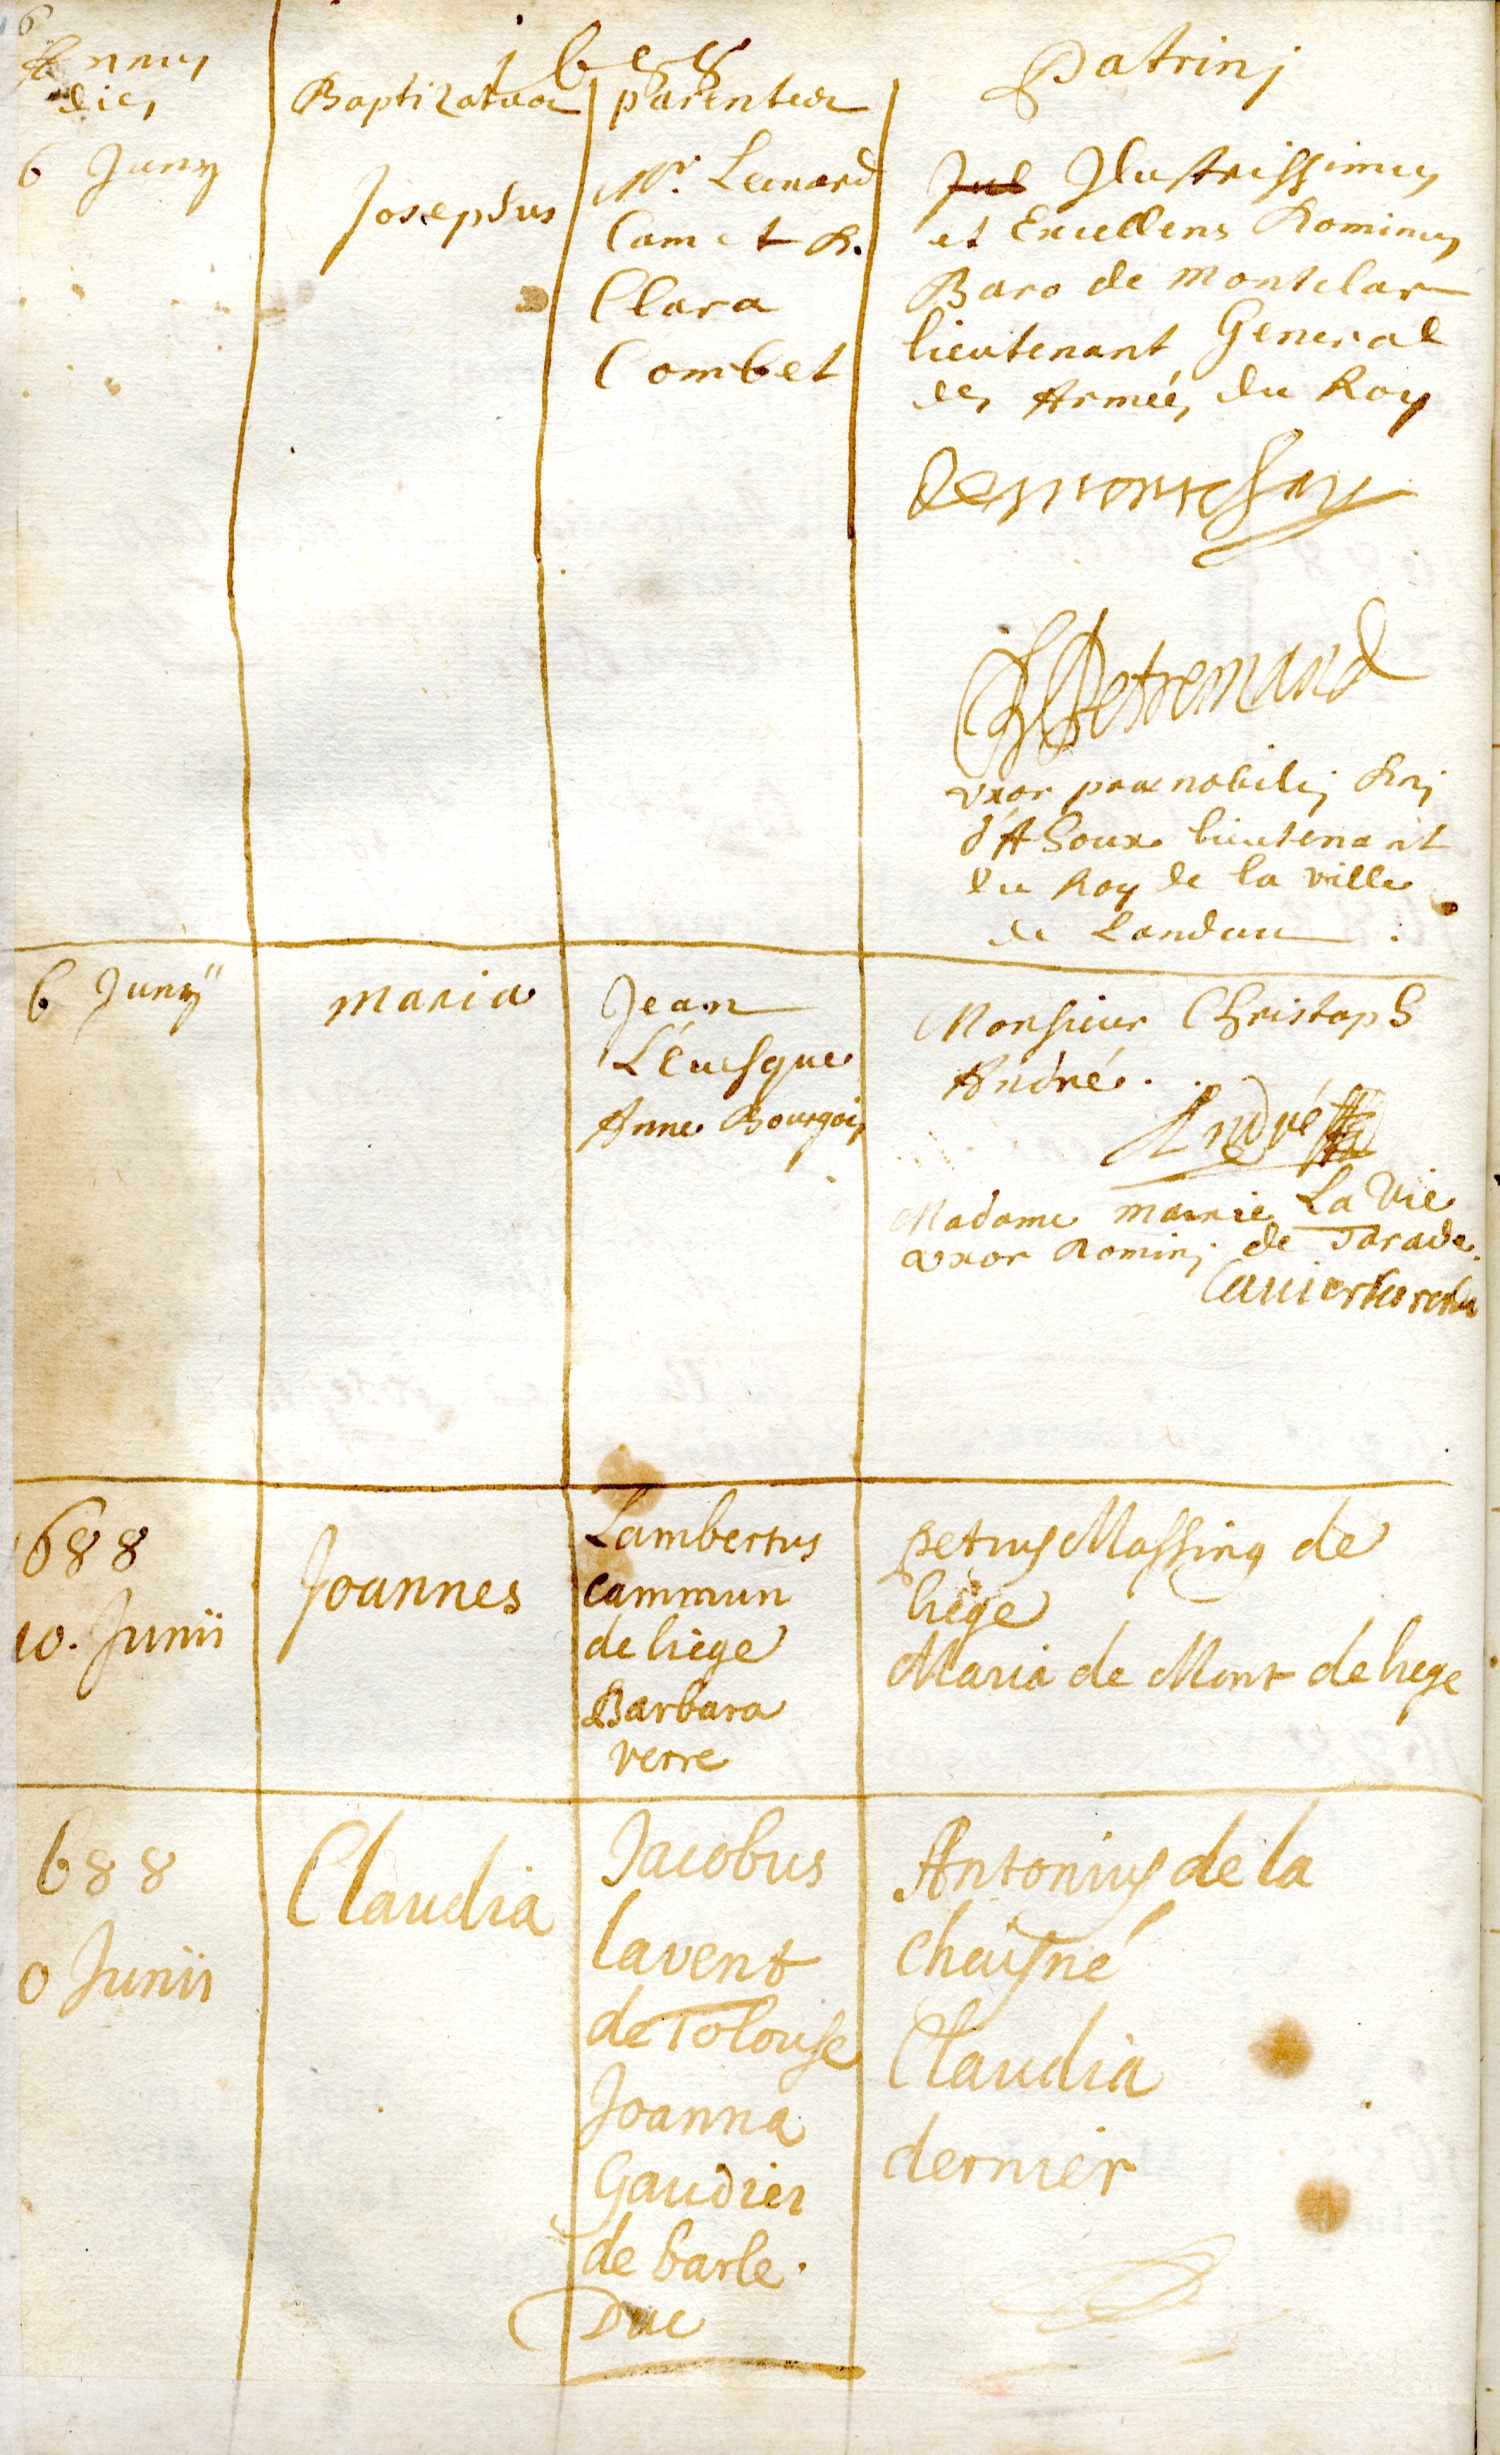 6
1688
Annus
dies
Baptizatus
parentes
Patrinj
6 Juny
Josephus
Mr. Leonard
Cam et D.
Clara
Combet
Jllustrissimus
et Excellens Dominus
Baro de Montclar
lieutenant General
des Armées du Roy
Demontclar
Petremand
vxor praenobilis Dni
lieutenant
du Roy de la ville
de Landau
6 Junÿ
maria
Jean
L'Euesque
Anne Bourgois
Monsieur Christoph
André.
André
Madame marie La Vie
uxor Dominj de Tarade.
688
10. Junii
Joannes
Lambertus
Cammun
de liege
Barbara
verre
petrus Massing de
liege
Maria de Mont de liege
688
0 Junii
Claudia
Jacobus
lavent
de Tolouse
Joanna
Gaudier
de barle.
Duc
Antonius de la
chaisné
Claudia
dernier